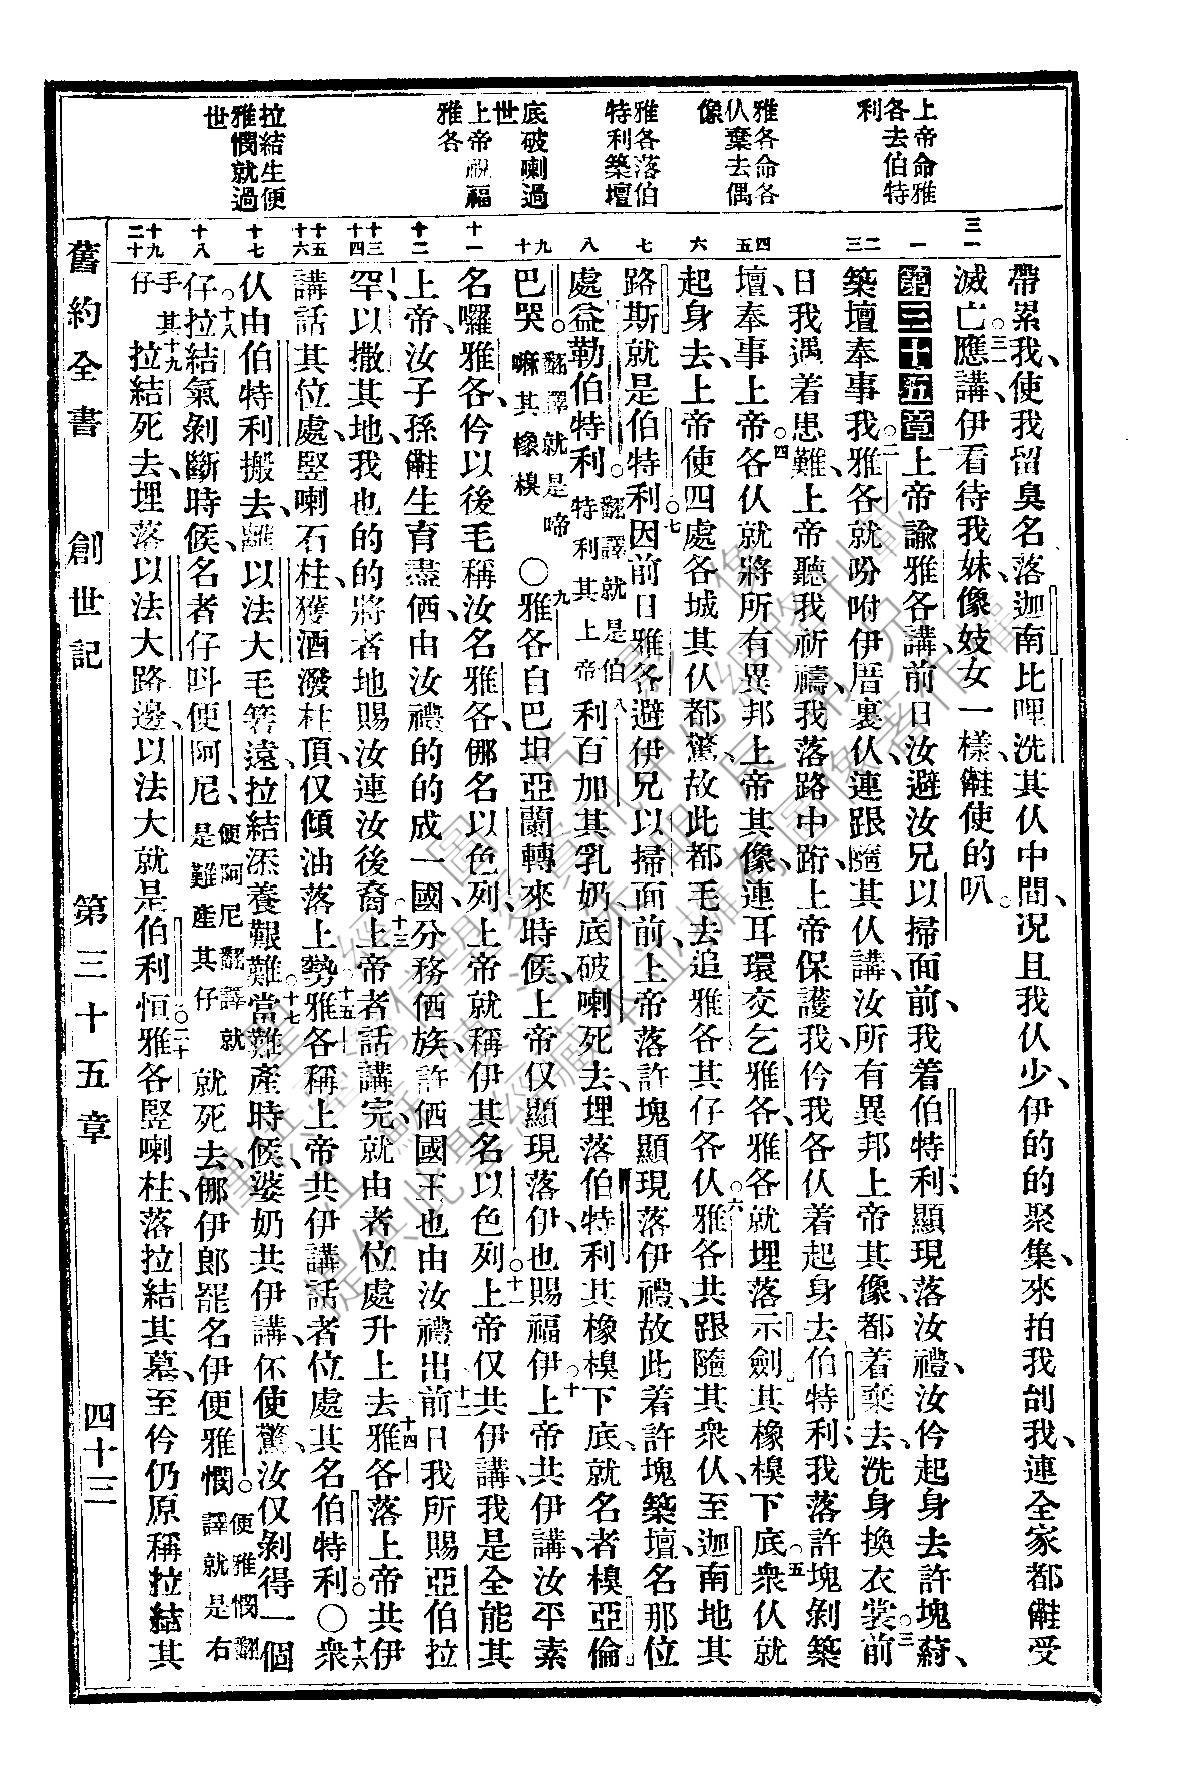 上帝命雅
各去伯特
利
雅各命各
仈棄去偶
像
雅各落伯
特利築壇
底破喇過
世
上帝祝福
雅各
拉結生便
雅憫就過
世
三一
一
二
三
四
五
六
七
八
九
十
十一
十二
十三
十四
十五
十六
十七
十八
十九
二十
帶累我、使我留臭名落迦南比哩洗其仈中間、况且我仈少、伊的的聚集、來拍我刣我、連全家都𣍐受
滅亡。三一應講伊看待我妹、像妓女一樣、𣍐使的叭。
第三十五章一上帝諭雅各講、前日汝避汝兄以掃面前、我着伯特利、顯現落汝禮、汝仱起身去許塊蒔、
築壇奉事我。二雅各就吩咐伊厝裏仈、連跟隨其仈講、汝所有異邦上帝其像、都着棄去、洗身換衣裳。三前
日我遇着患難、上帝聽我祈禱、我落路中跡、上帝保護我、仱我各仈着起身去伯特利、我落許塊剝築
壇、奉事上帝。四各仈就將所有異邦上帝其像、連耳環交乞雅各、雅各就埋落示劍其橡模下底。五衆仈就
起身去、上帝使四處各城其仈都驚、故此都毛去追雅各其仔。六各仈雅各共跟隨其衆仈、至迦南地其
路斯、就是伯特利。七因前日雅各避伊兄以掃面前、上帝落許塊顯現落伊禮、故此着許塊築壇、名那位
處益勒伯特利。翻譯就是伯特利其上帝八利百加其乳奶底破喇死去、埋落伯特利其橡模下底、就名者模亞倫
巴哭。翻譯就是啼嘛其橡模〇九雅各自巴坦亞蘭轉來時候、上帝仅顯現落伊、也賜福伊。十上帝共伊講、汝平素
名囉雅各、仱以後毛稱汝名雅各、哪名以色列、上帝就稱伊其名以色列。十一上帝仅共伊講、我是全能其
上帝、汝子孫𣍐生育盡、㑚由汝禮的的成一國、分務㑚族、許㑚國王也由汝禮出。十二前日我所賜亞伯拉
罕、以撒其地、我也的的將者地賜汝連汝後裔。十三上帝者話講完、就由者位處升上去。十四雅各落上帝共伊
講話其位處、豎喇石柱、獲酒潑柱頂、仅傾油落上勢。十五雅各稱上帝共伊講話者位處其名伯特利。〇十六衆
仈由伯特利搬去、離以法大毛箬遠、拉結添養艱難。十七當難產時候、婆奶共伊講、伓使驚、汝仅剝得一個
仔。十八拉結氣剝斷時候、名者仔呌便阿尼、便阿尼翻譯就是難產其仔就死去、哪伊郎罷名伊便雅憫。便雅憫翻譯就是右手其仔
十九拉結死去、埋落以法大路邊、以法大就是伯利恒。二十雅各豎喇柱、落拉結其墓、至仱仍原稱拉結其
舊約全書 創世記 第三十五章 四十三